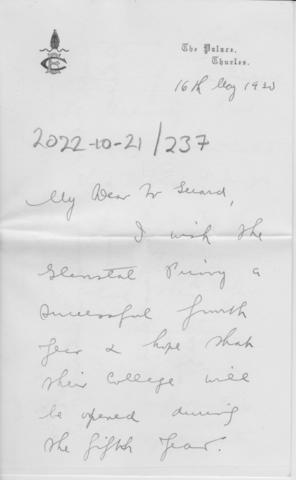 The Palace,
Thurles.
16th May 1930
2022-10-21/237
My Dear Fr Gerard,
I wish the
Glenstal Priory a
successful fourth
year & hope that
their College will
be opened during
the fifth year.